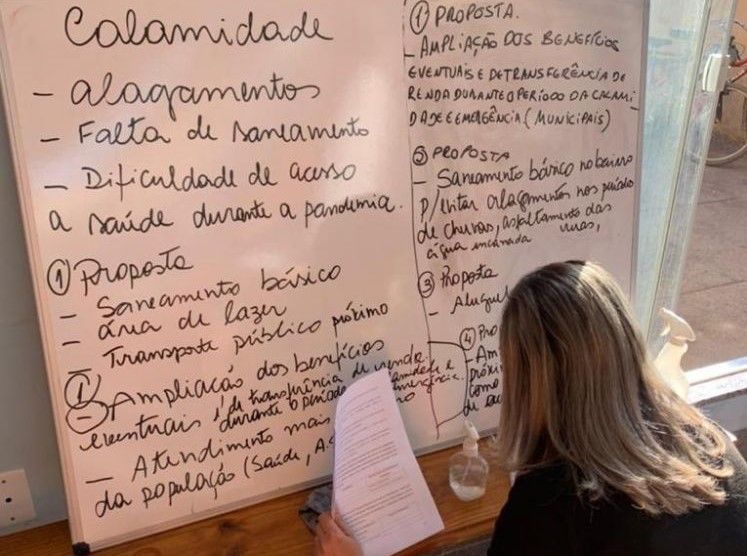 Calamidade
- alagamentos
- Falta de saneamento
- Dificuldade de acesso
a saúde durante a pandemia.
① Proposta
- Saneamento básico
- área de lazer
- Transporte público próximo
- Ampliação dos benefícios
eventuais e de transferência de renda
durante o período
emergência.
- Atendimento mais
da população (Saúde,
① PROPOSTA.
- AMPLIAÇÃO DOS BENEFÍCIOS
EVENTUAIS E DE TRANSFERÊNCIA DE
RENDA DURANTE O PERÍODO DA CALAMI
DADE E EMERGÊNCIA (MUNICIPAIS)
② PROPOSTA
- Saneamento básico no bairro
p/ evitar alagamentos nos período
de chuvas, asfaltamento das
ruas,
água encanada
③ Proposta
- Aluguel
④ Pro
- Am
próxi
como
de